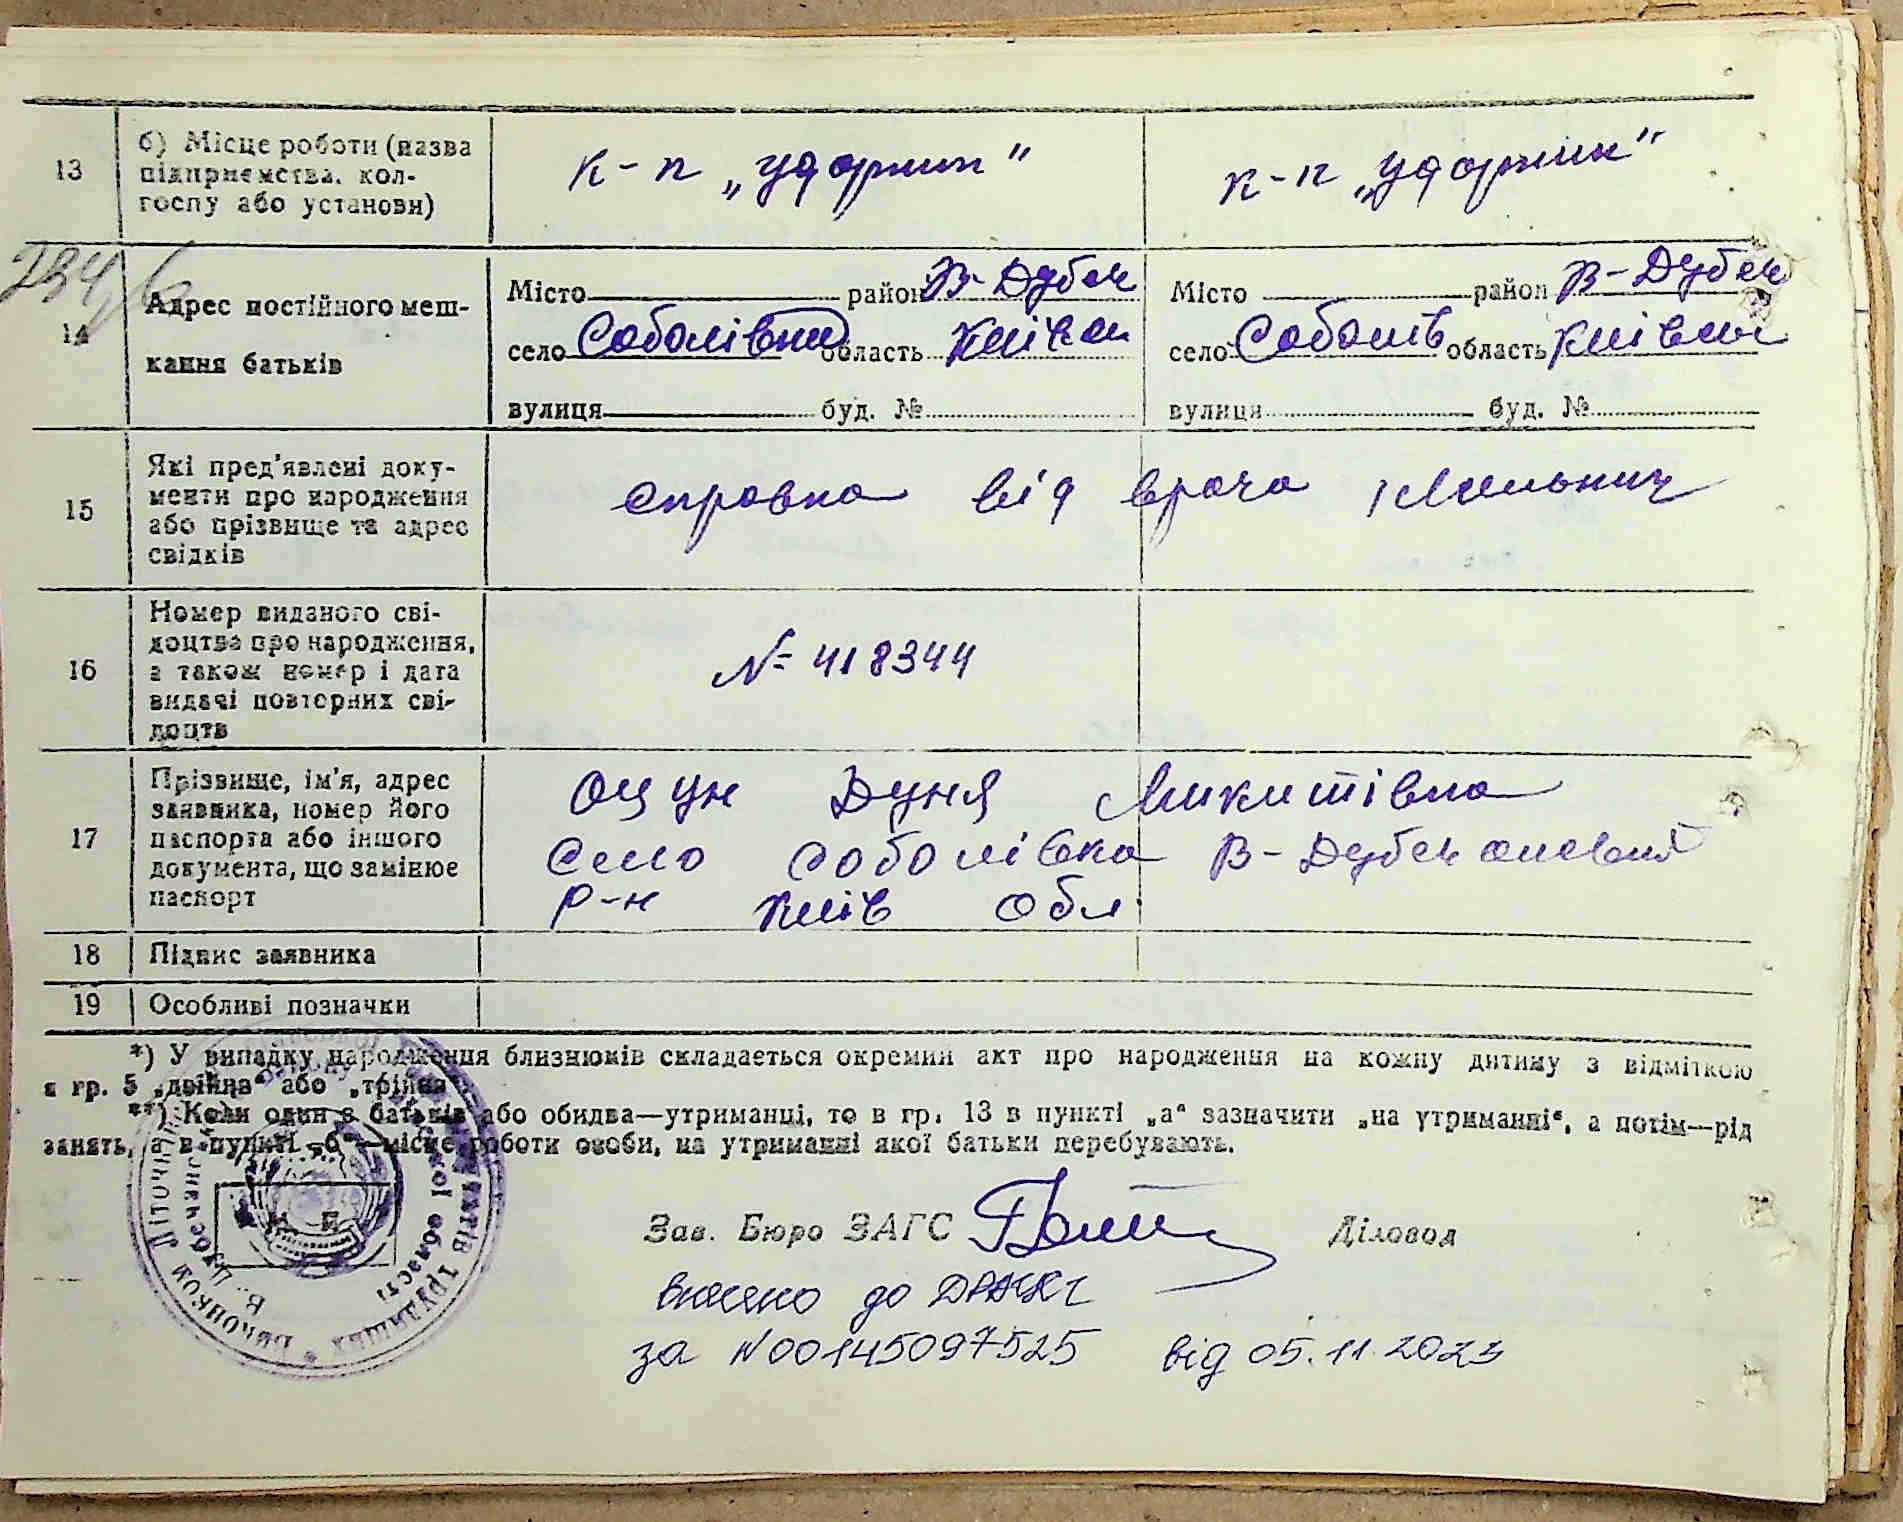 13
б) Місце роботи (назва
підприємства, кол-
госпу або установи)
к-п „ударник"
к-п „ударник"
234
14
Адрес постійного меш-
кання батьків
Місто район В-Дубеч
село Соболівка область Київськ
вулиця буд. №
Місто район В-Дубеч
село Соболів область Київськ
вулиця буд. №
15
Які пред'явлені доку-
менти про народження
або прізвище та адрес
свідків
справка від врача Мельнич
16
Номер виданого сві-
доцтва про народження,
а також номер і дата
видачі повторних сві-
доцтв
№ 418344
17
Прізвище, ім'я, адрес
заявника, номер його
паспорта або іншого
документа, що замінює
паспорт
Оцун Дуня Микитівна
село Соболівка В-Дубеч
р-н Київ обл.
18
Підпис заявника
19
Особливі позначки
*) У випадку народження близнюків складається окремий акт про народження на кожну дитину з відміткою
в гр. 5 „двійня" або „трійня"
**) Коли один з батьків або обидва—утриманці, то в гр. 13 в пункті „а" зазначити „на утриманні", а потім—рід
занять, а в пункті „б"—місце роботи особи, на утриманні якої батьки перебувають.
Зав. Бюро ЗАГС
Діловод
внесено до ДРАЦСГ
за N00145097525 від 05.11.2023